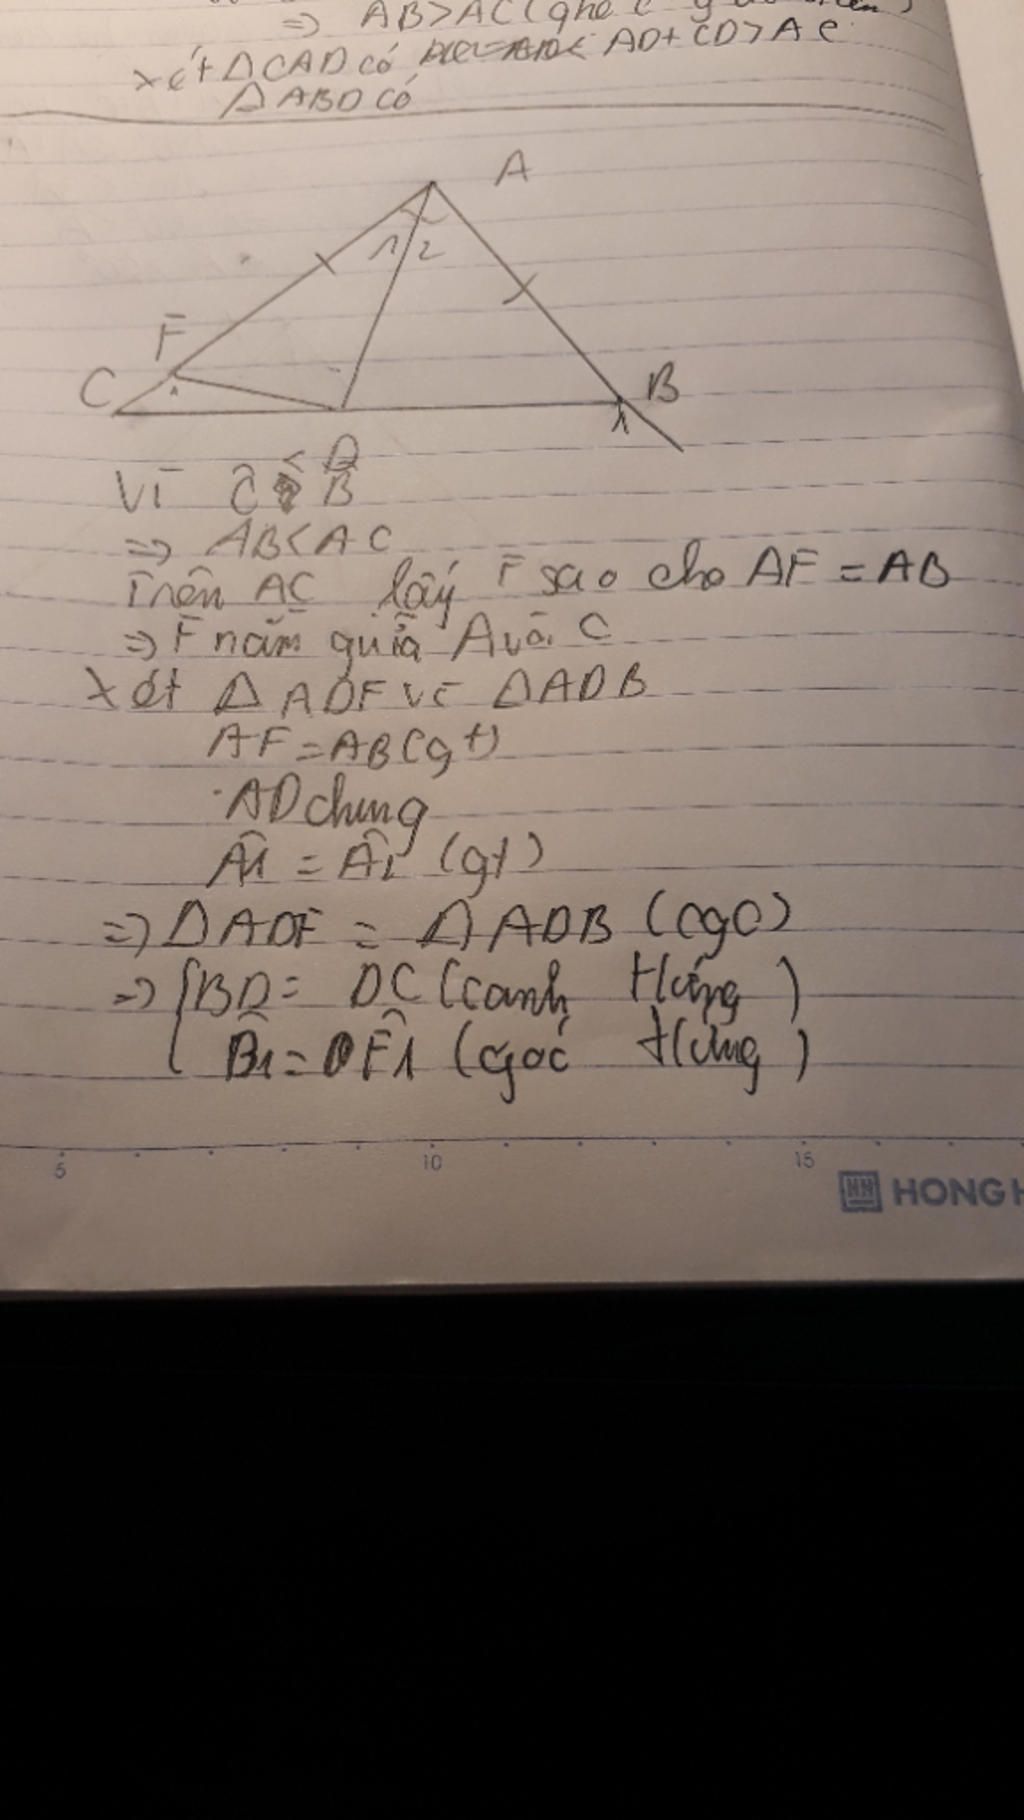 => AB>AC (
xét ΔCAD có AD+CD>AC
ΔABD có
A
1 2
F
1
C
B
1
D
Vì Ĉ < B̂
=> AB<AC
Trên AC lấy F sao cho AF = AB
=> F nằm giữa A và C
Xét ΔADF và ΔADB
AF=AB(gt)
AD chung
Â1 = Â2 (gt)
=> ΔADF = ΔADB (cgc)
=> { BD = DC (canh tướng)
B̂1 = F̂1 (goć tướng)
5 10 15
HH HONG H